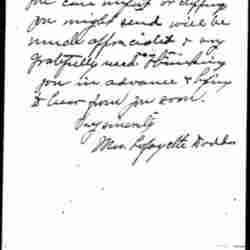 you care might or clipping
you might send will be
much appreciated & any
gratefully recd thanking
you in advance & hoping
to hear from you soon.
Very sincerely
Mrs. Lafayette Dodds